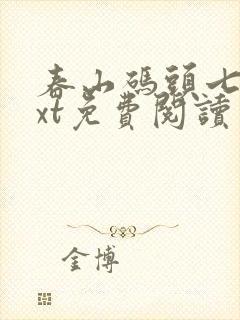 春山碼頭七
xt免費閱讀
金博